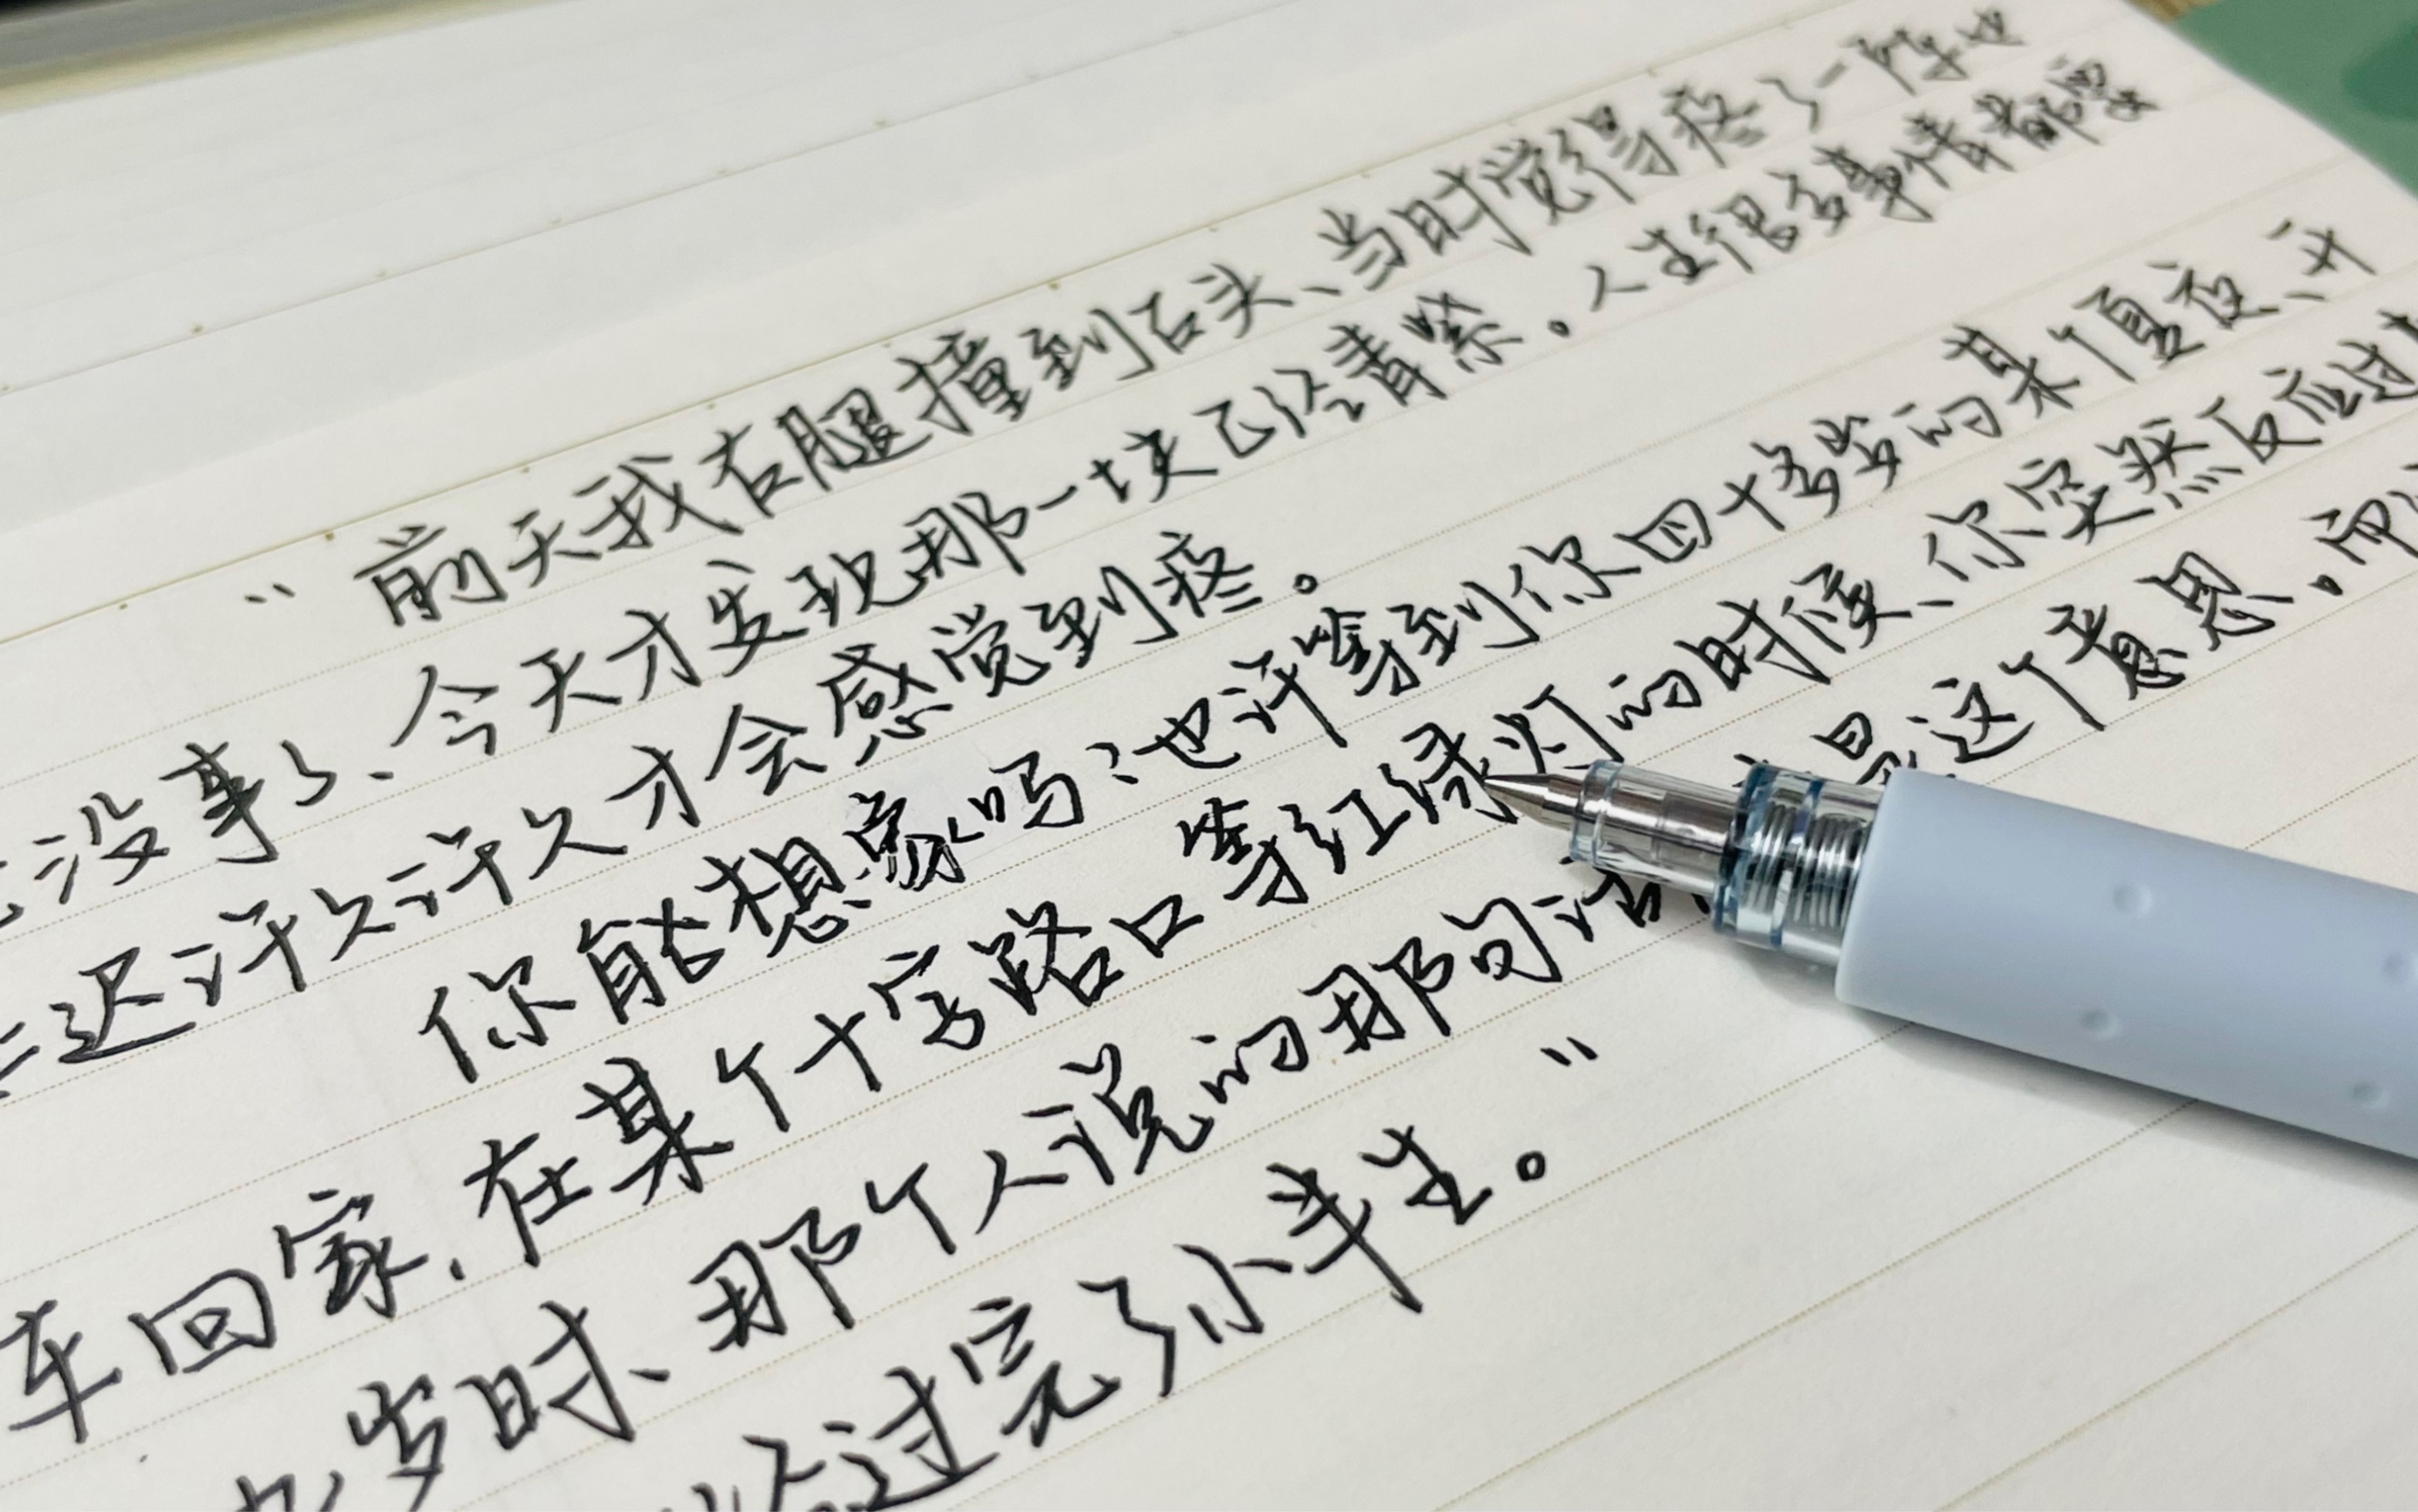 “前天我右腿撞到石头、当时觉得疼了一阵也
没事了、今天才发现那一块已经青紫。人生很多事情都要
迟许久许久才会感觉到疼。
你能想象吗?也许等到你四十多岁的某个夏夜、开
车回家,在某个十字路口等红绿灯的时候、你突然反应过
岁时、那个人说的那句话、是这个意思,而
过完了小半生。”